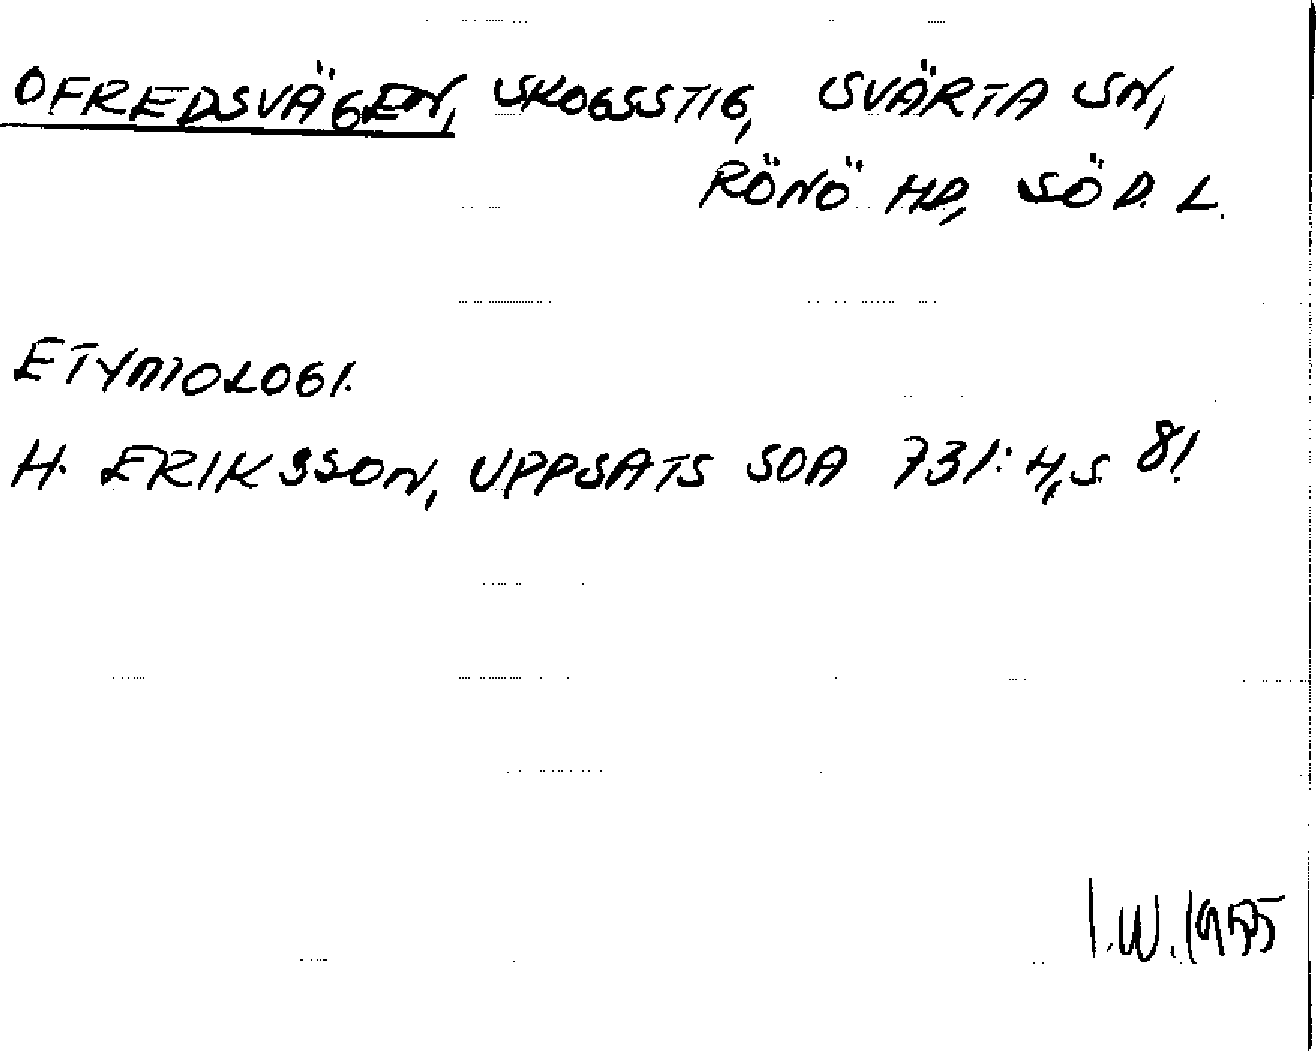 OFREDSVÄGEN, SKOGSSTIG, SVÄRTA SN,
RÖNÖ HD, SÖD. L.
ETYMOLOGI.
H. ERIKSSON, UPPSATS SOA 731:4, S. 81
I.W.